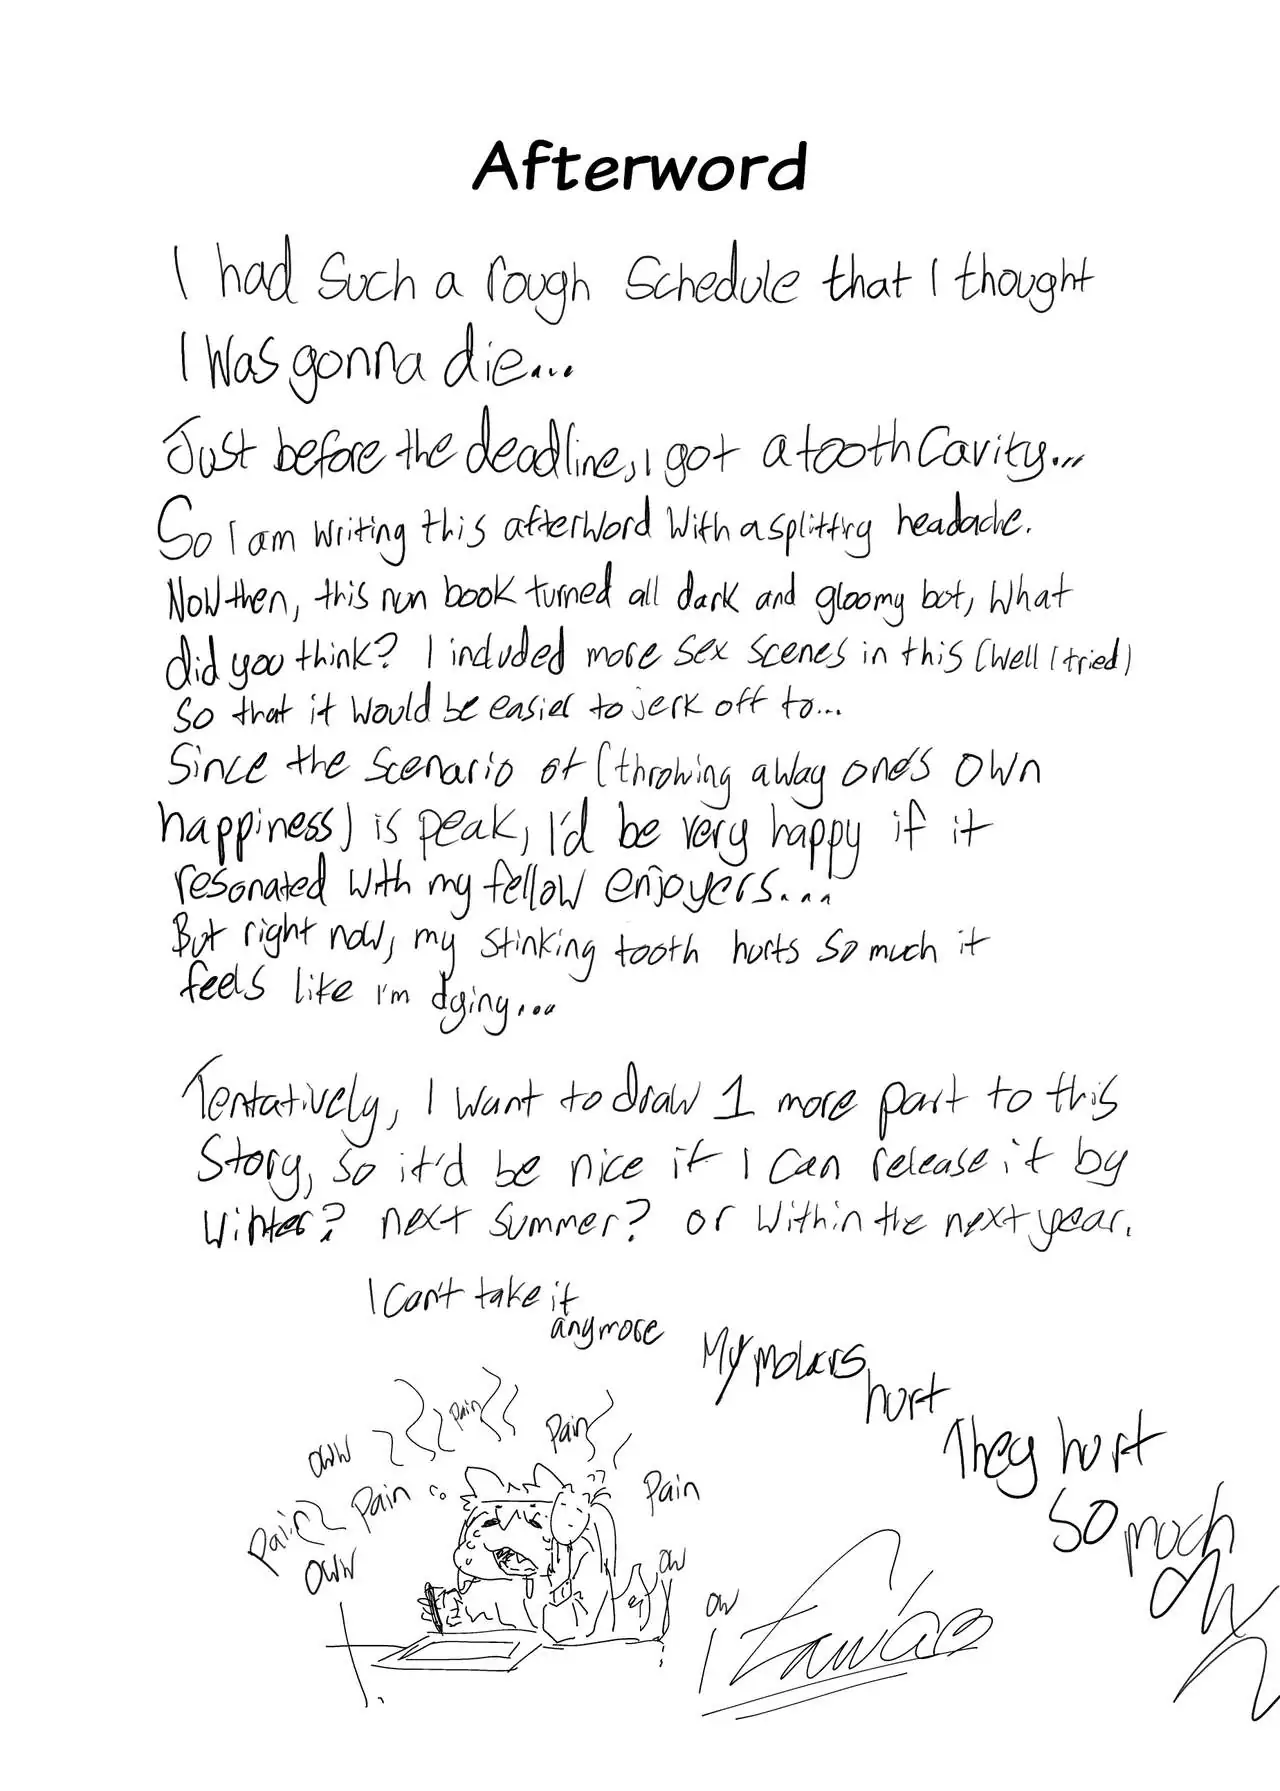 Afterword
I had such a rough schedule that I thought
I was gonna die...
Just before the deadline, I got a tooth cavity...
So I am writing this afterword with a splitting headache.
Now then, this nun book turned all dark and gloomy bot, what
did you think? I included more sex scenes in this (well I tried)
so that it would be easier to jerk off to...
Since the scenario of (throwing away one's own
happiness) is peak, I'd be very happy if it
resonated with my fellow enjoyers...
But right now, my stinking tooth hurts so much it
feels like I'm dying...
Tentatively, I want to draw 1 more part to this
story, so it'd be nice if I can release it by
winter? next summer? or within the next year.
I can't take it
anymore
My molars
hurt
They hurt
so much
pain
pain
oww
pain
pain
pain
oww
ow
ow